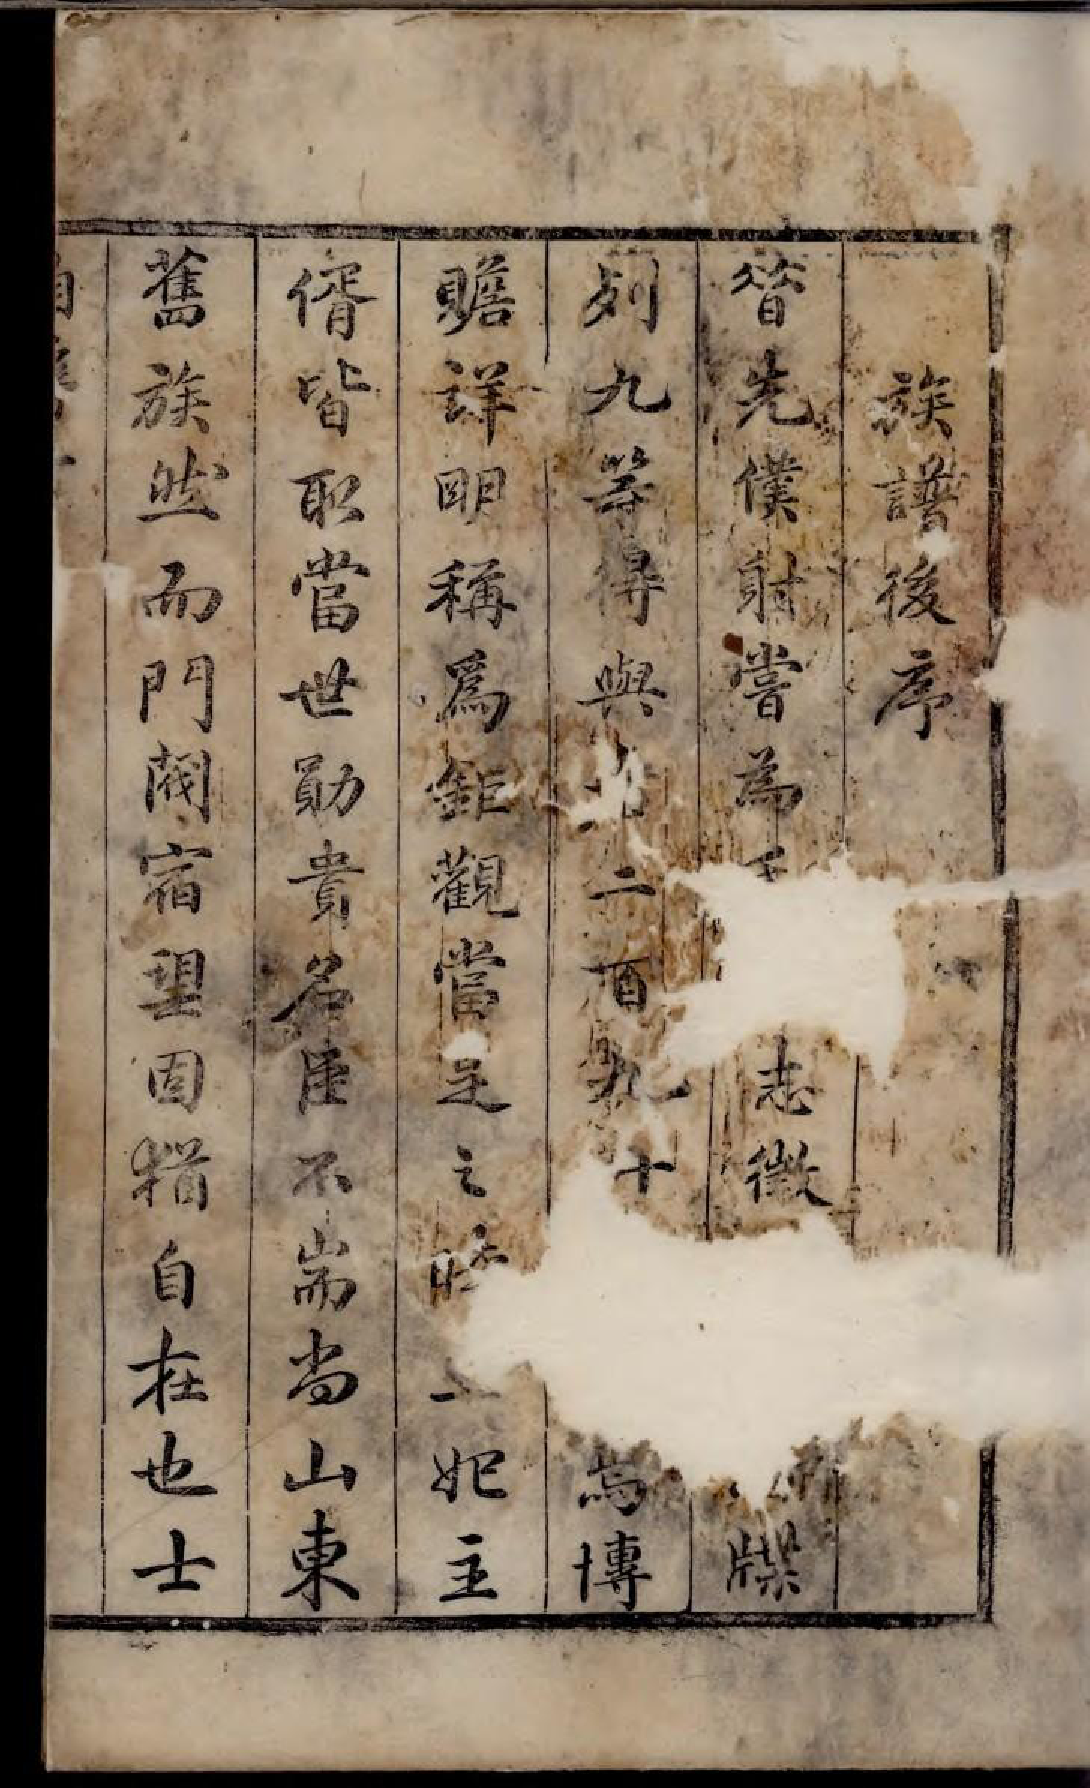 族譜後序
昔先僕射嘗為志徵牒
列九等得與二百九十為博
贍詳明稱為鉅觀當是之時二妃主
偦皆取當世勛貴名臣不耑尚山東
舊族然而門閥宿望固猶自在也士